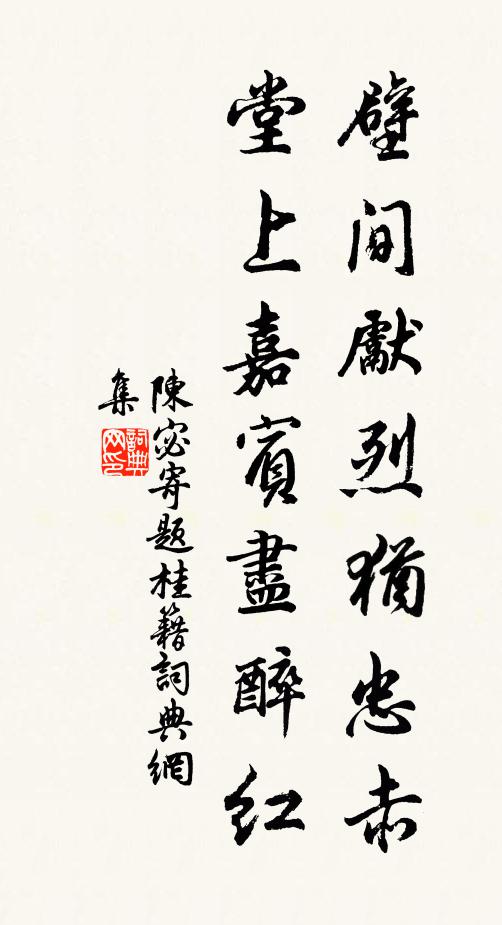 壁間獻烈猶忠赤
堂上嘉賓盡醉紅
陳宓寄題桂籍詞典網
集
詞典网印